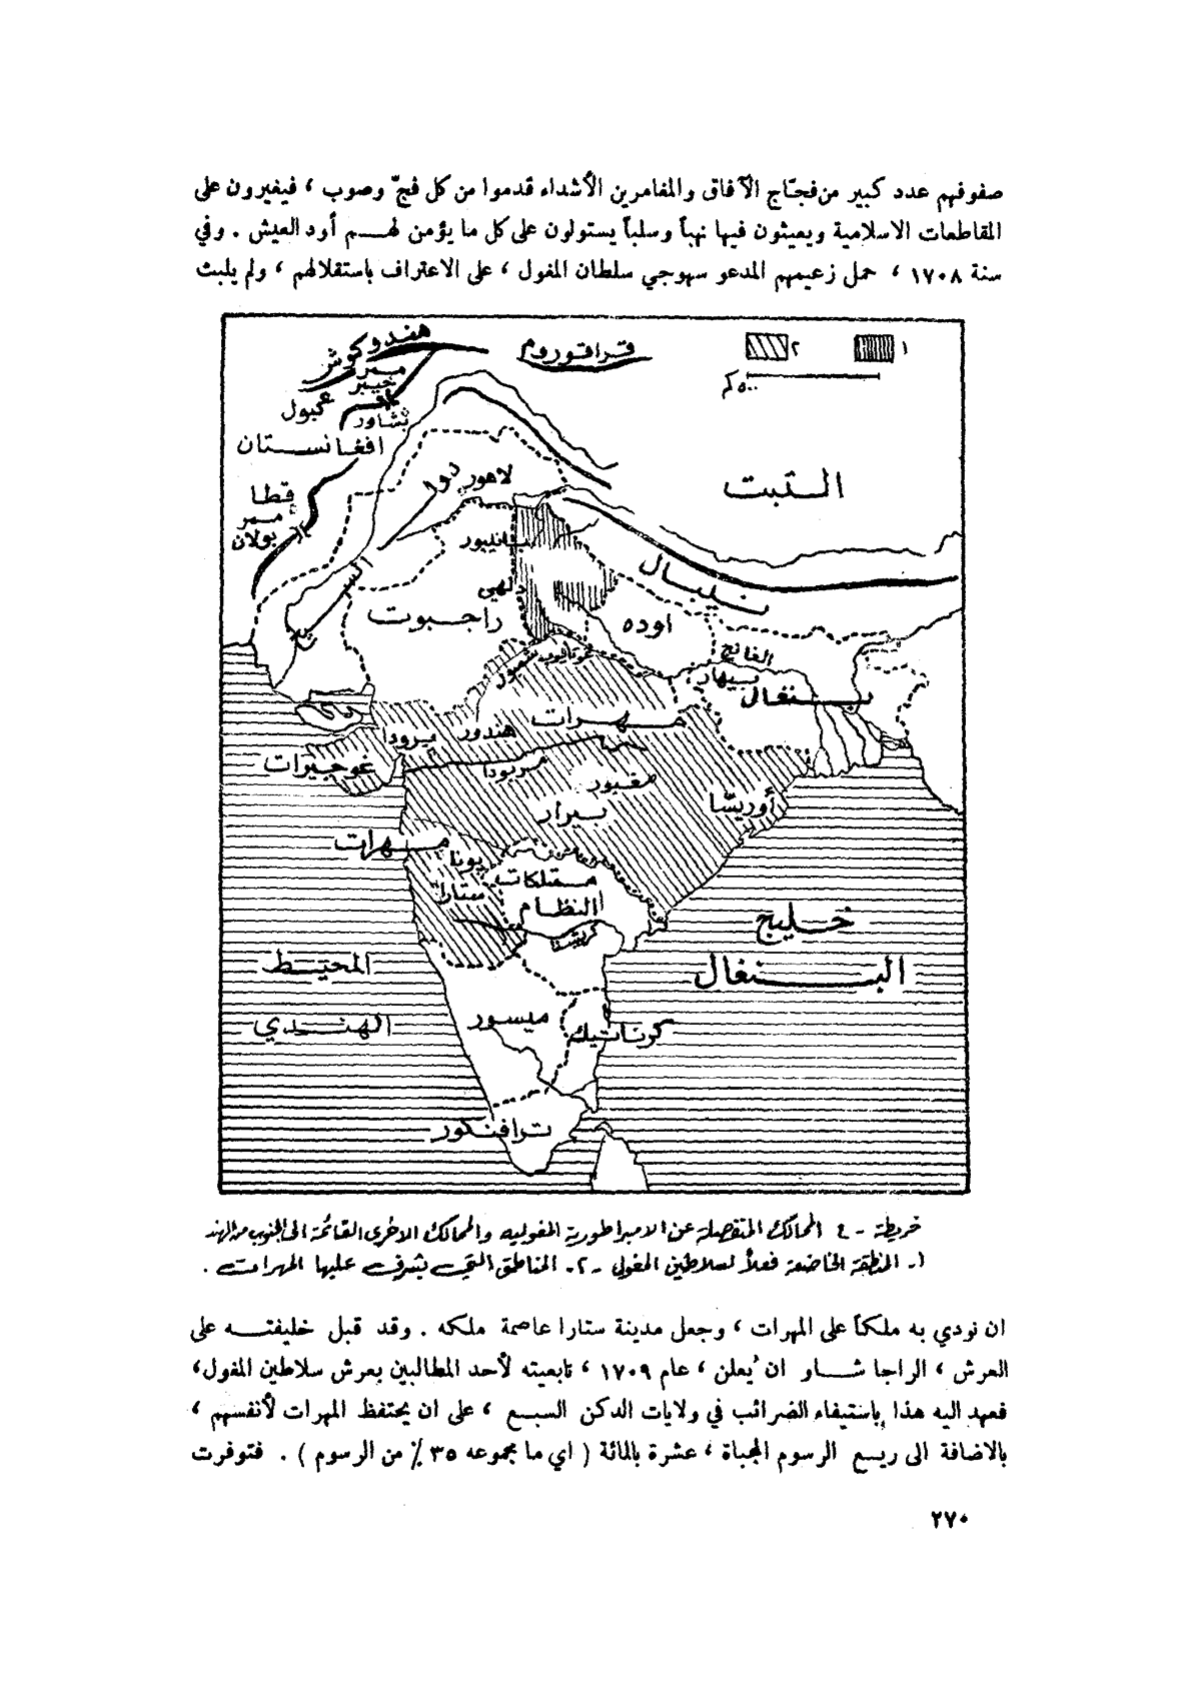 صفوفهم عدد كبير من فجّاج الآفاق والمغامرين الأشداء قدموا من كل فجّ وصوب ، فيغيرون على
المقاطعات الاسلامية ويعيثون فيها نهباً وسلباً يستولون على كل ما يؤمن لهم أود العيش . وفي
سنة ١٧٠٨ ، حمل زعيمهم المدعو سهوجي سلطان المغول ، على الاعتراف باستقلالهم ، ولم يلبث
١
٢
٥٠٠ كم
هندوكوش
قراقوروم
ممر
خيبر
كبول
بشاور
افغانستان
التبت
لاهور
قطا
ممر
بولان
السند
دلهي
نيبال
راجبوت
اوده
الغانج
بيهار
بنغال
مهرات
هندور
بيرودا
غوجيرات
بيرار
أوريسّا
مهرات
پونا
ستارا
ممتلكات
النظام
كريشنا
خليج
البنغال
المحيط
الهندي
ميسور
كرناتيك
ترافنكور
خريطة - ٤ الممالك المنفصلة عن الامبراطورية المغولية والممالك الاخرى القائمة الى الجنوب من الهند
١ - المنطقة الخاضعة فعلاً لسلاطين المغول - ٢ - المناطق التي يشرف عليها المهرات .
ان نودي به ملكاً على المهرات ، وجعل مدينة ستارا عاصمة ملكه . وقد قبل خليفته على
العرش ، الراجا شاو ان يُعلن ، عام ١٧٠٩ ، تابعيته لأحد المطالبين بعرش سلاطين المغول ،
فعهد اليه هذا باستيفاء الضرائب في ولايات الدكن السبع ، على ان يحتفظ المهرات لأنفسهم ،
بالاضافة الى ريع الرسوم المجباة ، عشرة بالمائة ( اي ما مجموعه ٣٥ ٪ من الرسوم ) . فتوفرت
٢٧٠